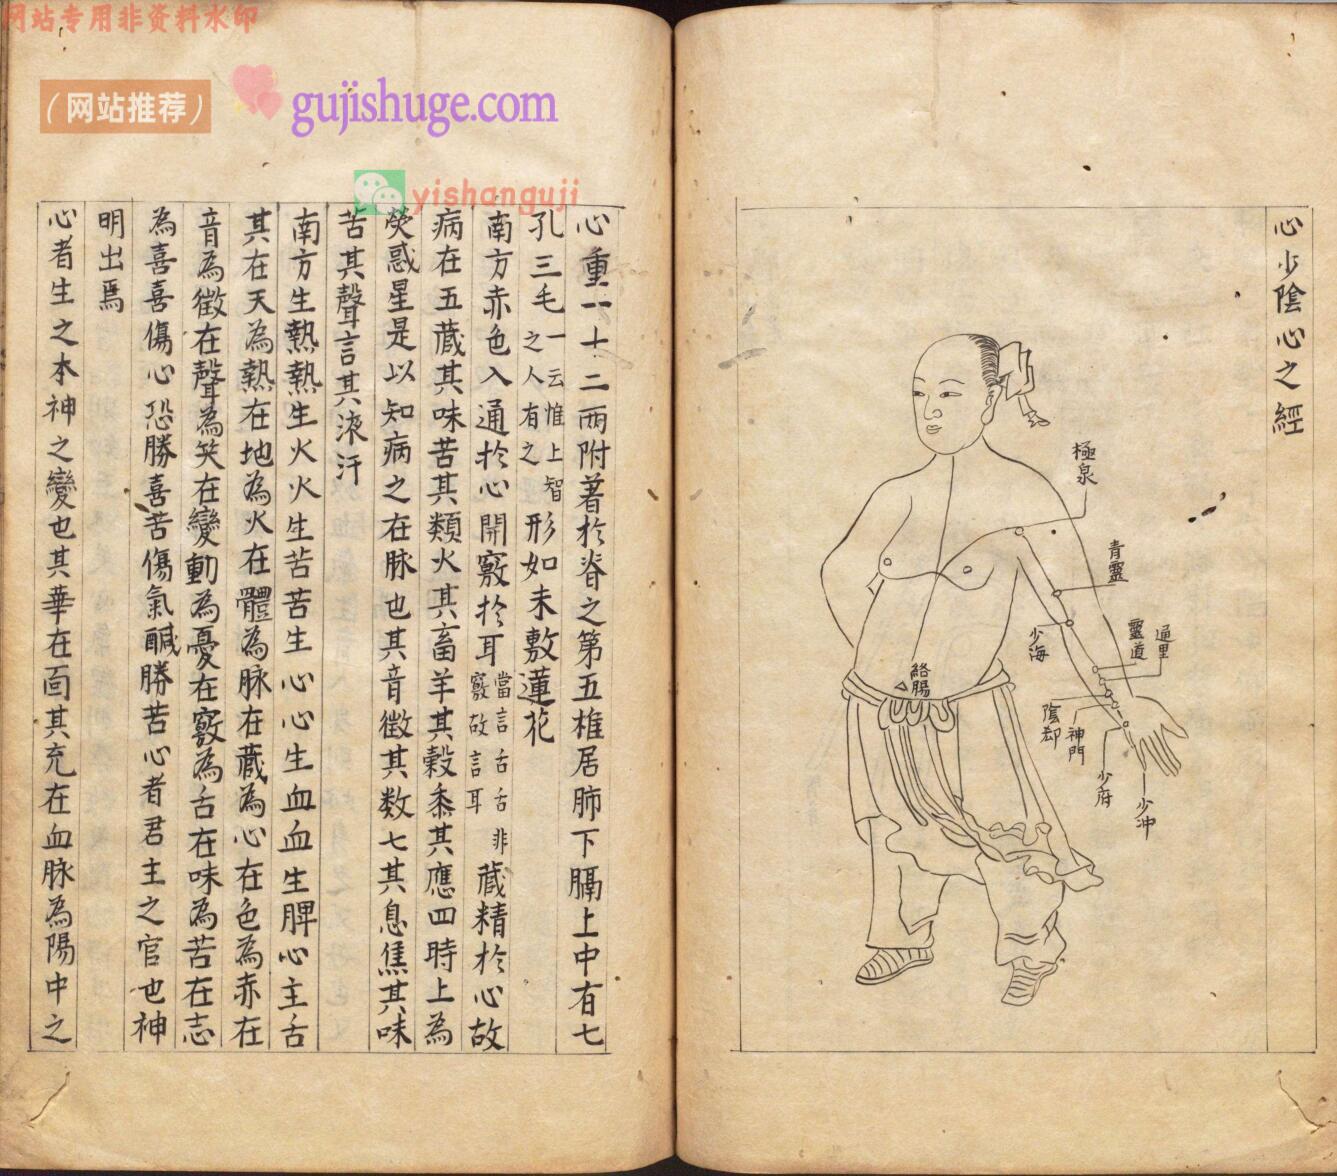 网站专用非资料水印
（网站推荐）
gujishuge.com
yishanguji
心少陰心之經
極泉
青靈
少海
靈道
通里
陰郄
神門
少府
少冲
絡腸
心重一十二兩附著於脊之第五椎居肺下膈上中有七
孔三毛一云惟上智之人有之形如未敷蓮花
南方赤色入通於心開竅於耳當言舌舌非竅故言耳藏精於心故
病在五藏其味苦其類火其畜羊其穀黍其應四時上為
熒惑星是以知病之在脉也其音徵其数七其息焦其味
苦其聲言其液汗
南方生熱熱生火火生苦苦生心心生血血生脾心主舌
其在天為熱在地為火在體為脉在藏為心在色為赤在
音為徵在聲為笑在變動為憂在竅為舌在味為苦在志
為喜喜傷心恐勝喜苦傷氣鹹勝苦心者君主之官也神
明出焉
心者生之本神之變也其華在面其充在血脉為陽中之